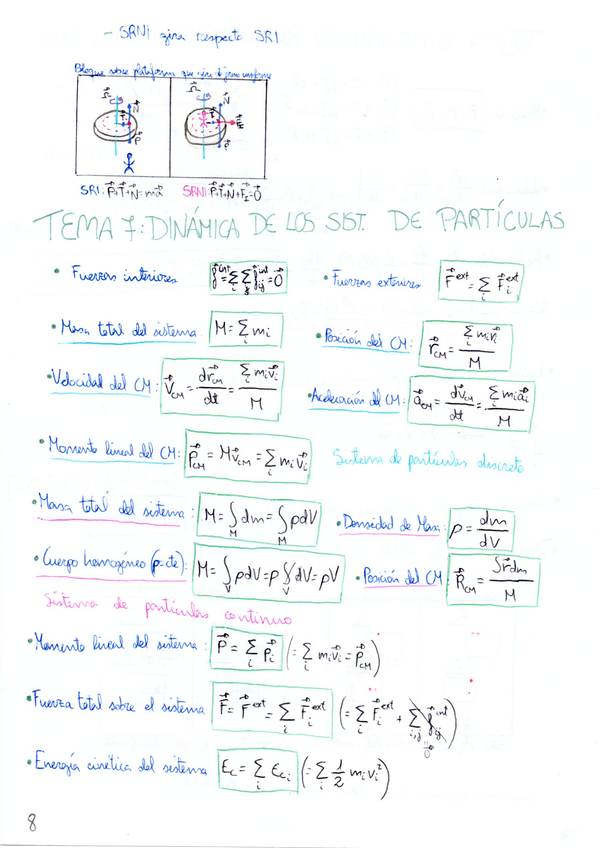 - SRNI gira respecto SRI
Bloque sobre plataforma que gira de forma uniforme
Ω⃗ N⃗ T⃗ P⃗
Ω⃗ N⃗ T⃗ F⃗_I P⃗
SRI: P⃗+T⃗+N⃗=ma⃗ SRNI: P⃗+T⃗+N⃗+F⃗_I=0⃗
TEMA 7: DINÁMICA DE LOS SIST. DE PARTÍCULAS
• Fuerzas interiores f⃗^int=Σ_i Σ_j f⃗_ij^int=0⃗ • Fuerzas exteriores F⃗^ext=Σ_i F⃗_i^ext
• Masa total del sistema: M=Σ_i m_i • Posición del CM: r⃗_CM=Σ_i m_i r⃗_i / M
• Velocidad del CM: V⃗_CM=dr⃗_CM/dt=Σ_i m_i v⃗_i / M • Aceleración del CM: a⃗_CM=dv⃗_CM/dt=Σ_i m_i a⃗_i / M
• Momento lineal del CM: P⃗_CM=Mv⃗_CM=Σ_i m_i v⃗_i Sistema de partículas discreto
• Masa total del sistema: M=∫_M dm=∫_M ρdV • Densidad de Masa: ρ=dm/dV
• Cuerpo homogéneo (ρ=cte): M=∫_V ρdV=ρ∫_V dV=ρV • Posición del CM: R⃗_CM=∫r⃗dm / M
Sistema de partículas continuo
• Momento lineal del sistema: P⃗=Σ_i p⃗_i (=Σ_i m_i v⃗_i=P⃗_CM)
• Fuerza total sobre el sistema F⃗=F⃗^ext=Σ_i F⃗_i^ext (=Σ_i F⃗_i^ext+Σ_i,j f⃗_ij^int) 0⃗
• Energía cinética del sistema Ec=Σ_i Ec_i (=Σ_i 1/2 m_i v_i²)
8